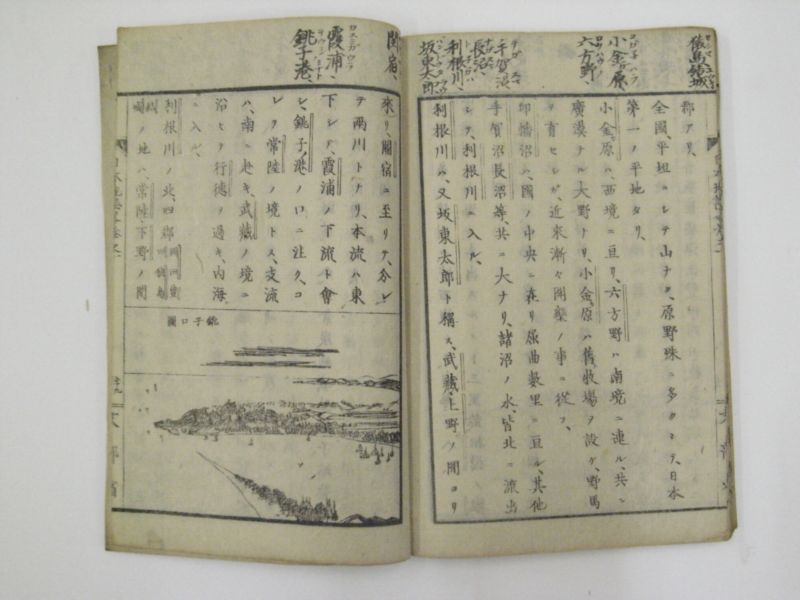 小金原、
六方野、
手賀沼
長沼、
利根川、
坂東太郎
郡アリ、
全國、平坦ニシテ山ナク、原野殊ニ多クシテ、日本
第一ノ平地タリ、
小金原ハ、西境ニ亘リ、六方野ハ南境ニ連ル、共ニ
廣漠ナル大野ナリ、小金原ハ舊牧場ヲ設ケ、野馬
ヲ育セシガ、近來漸々開墾ノ事ニ從フ、
印旛沼ハ、國ノ中央ニ在リ屈曲數里ニ亘ル、其他
手賀沼長沼等、共ニ大ナリ、諸沼ノ水、皆北ニ流出
シテ、利根川ニ入ル、
利根川ハ、又坂東太郎ト稱ス、武藏、上野ノ間ヨリ
関宿、
霞浦、
銚子港、
來リ、關宿ニ至リテ、分レ
テ兩川トナリ、本流ハ東
下シテ、霞浦ノ下流ト會
シ、銚子港ノ口ニ注ク、コ
レヲ常陸ノ境トス、支流
ハ、南ニ赴キ、武藏ノ境ニ
沿ヒテ行德ヲ過キ、内海
ニ入ル、
利根川ノ北、四郡
ノ地ハ、常陸、下野ノ間
銚子口圖